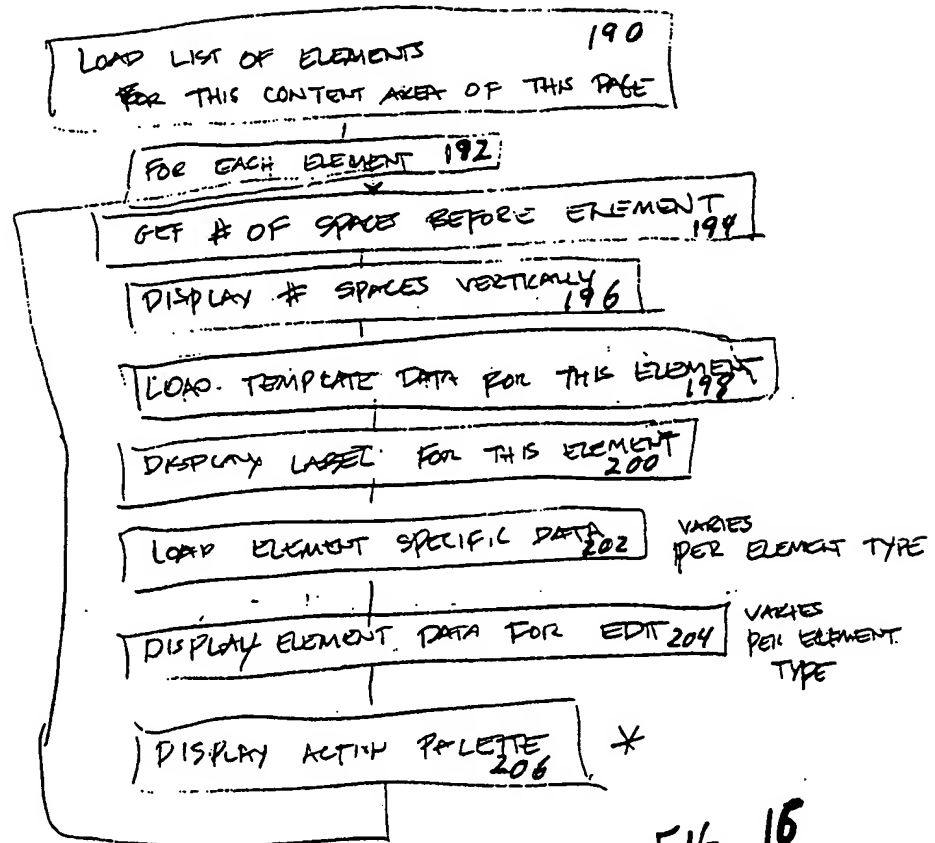 LOAD LIST OF ELEMENTS 190
FOR THIS CONTENT AREA OF THIS PAGE
FOR EACH ELEMENT 192
GET # OF SPACES BEFORE ELEMENT
194
DISPLAY # SPACES VERTICALLY
196
LOAD TEMPLATE DATA FOR THIS ELEMENT
198
DISPLAY LABEL FOR THIS ELEMENT
200
LOAD ELEMENT SPECIFIC DATA 202
VARIES
PER ELEMENT TYPE
DISPLAY ELEMENT DATA FOR EDIT 204
VARIES
PER ELEMENT
TYPE
DISPLAY ACTION PALETTE *
206
FIG 16